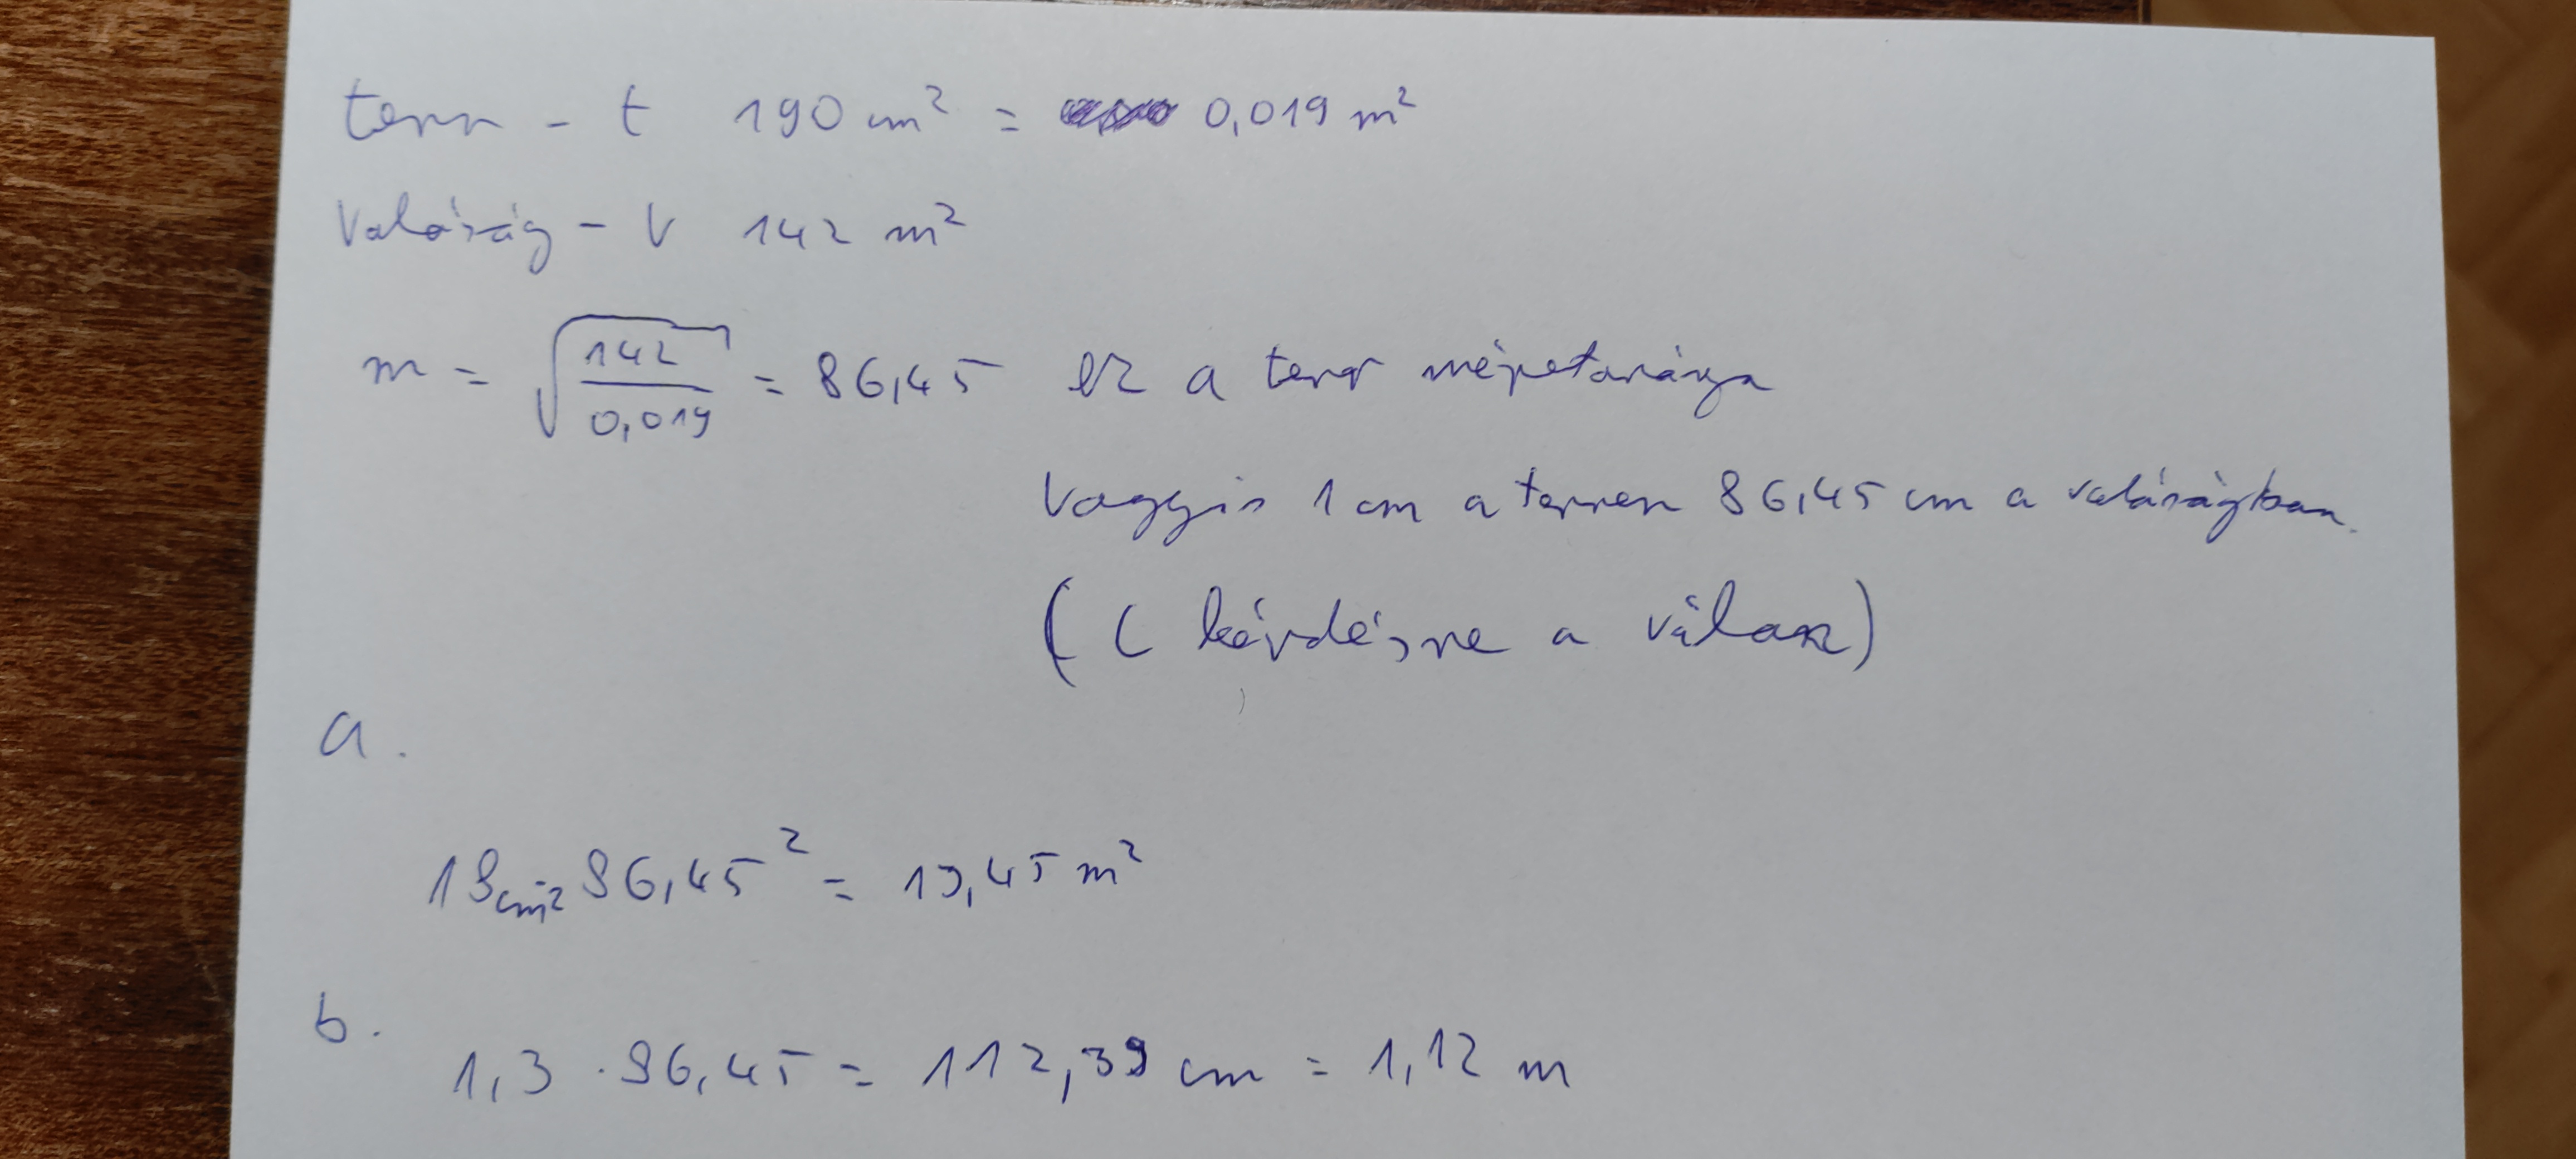 terv - t 190 cm² = 0,019 m²
Valóság - V 142 m²
m = √(142/0,019) = 86,45 ez a terv méretaránya
Vagyis 1 cm a terven 86,45 cm a valóságban.
( C kérdésre a válasz)
a.
18cm² 86,45² = 13,45 m²
b.
1,3 · 86,45 = 112,39 cm = 1,12 m